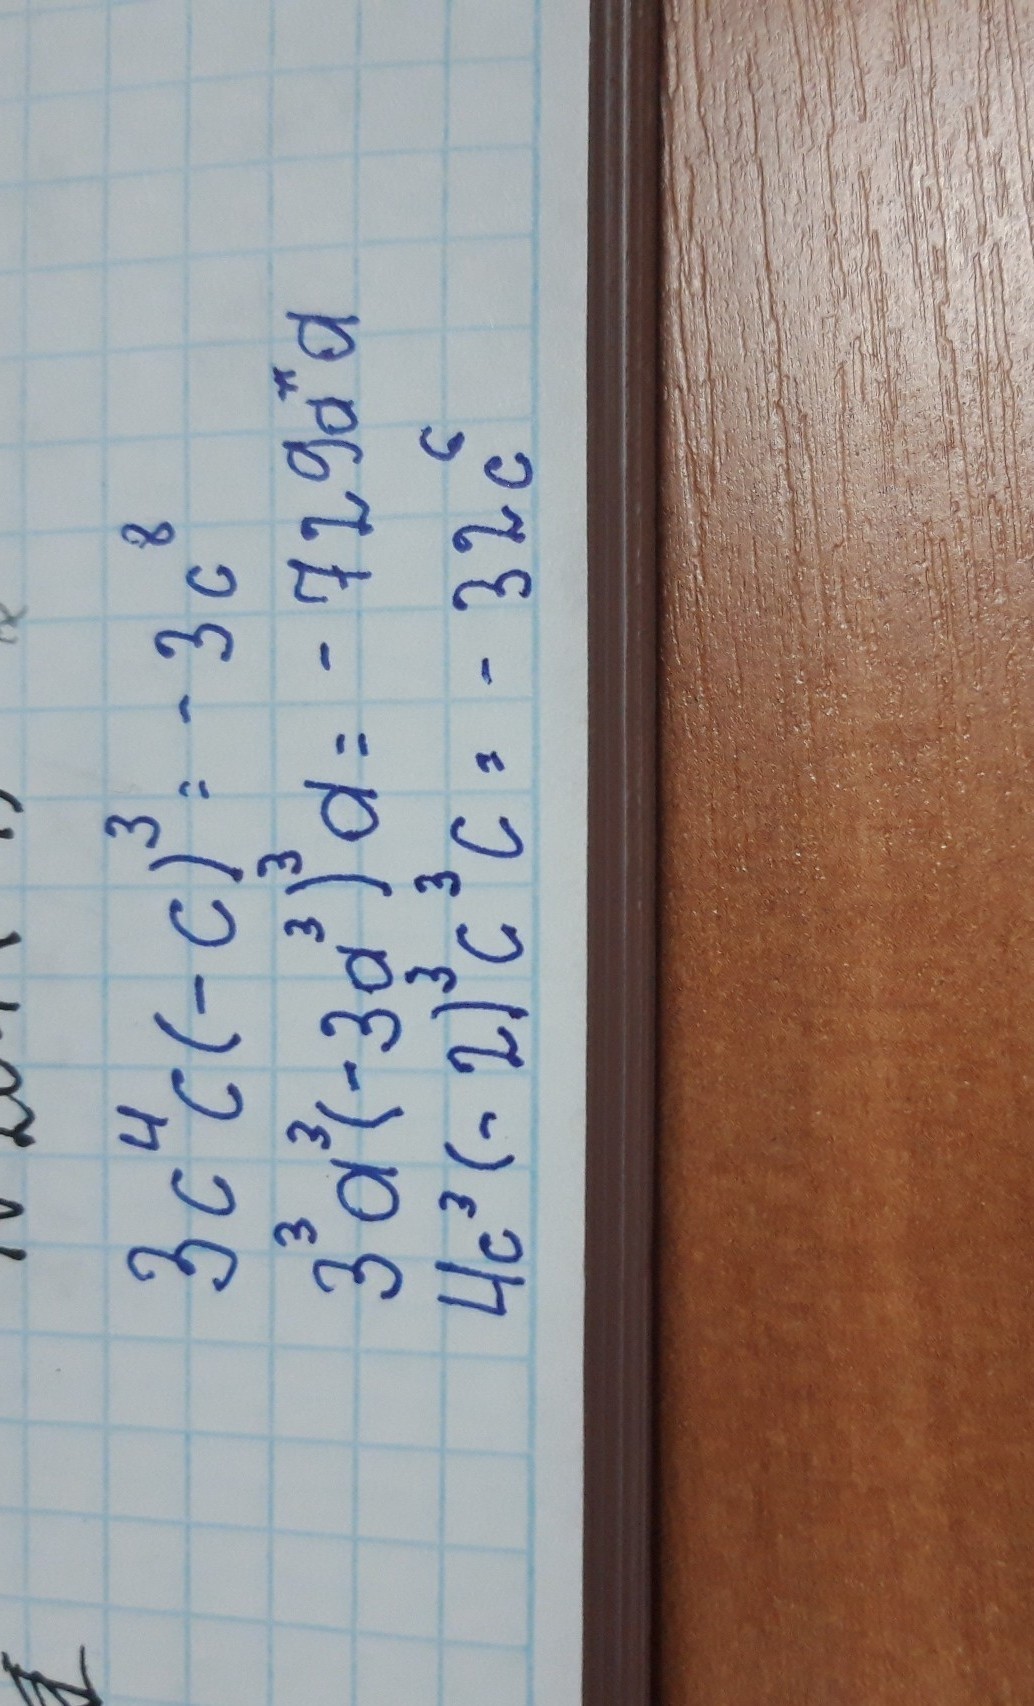 3c⁴c(-c)³ = -3c⁸
3³a³(-3a³)³a = -729a"a
4c³(-2)³c³c = -32c⁶